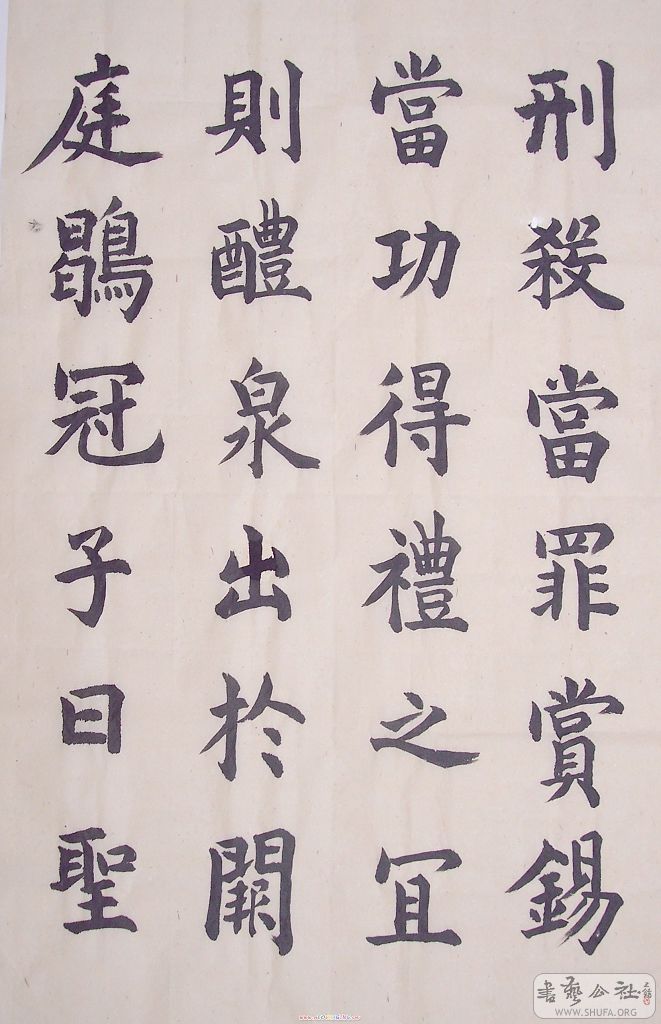 刑殺當罪賞錫
當功得禮之冝
則醴泉出於闕
庭鶡冠子曰聖
書藝公社
WWW.SHUFA.ORG